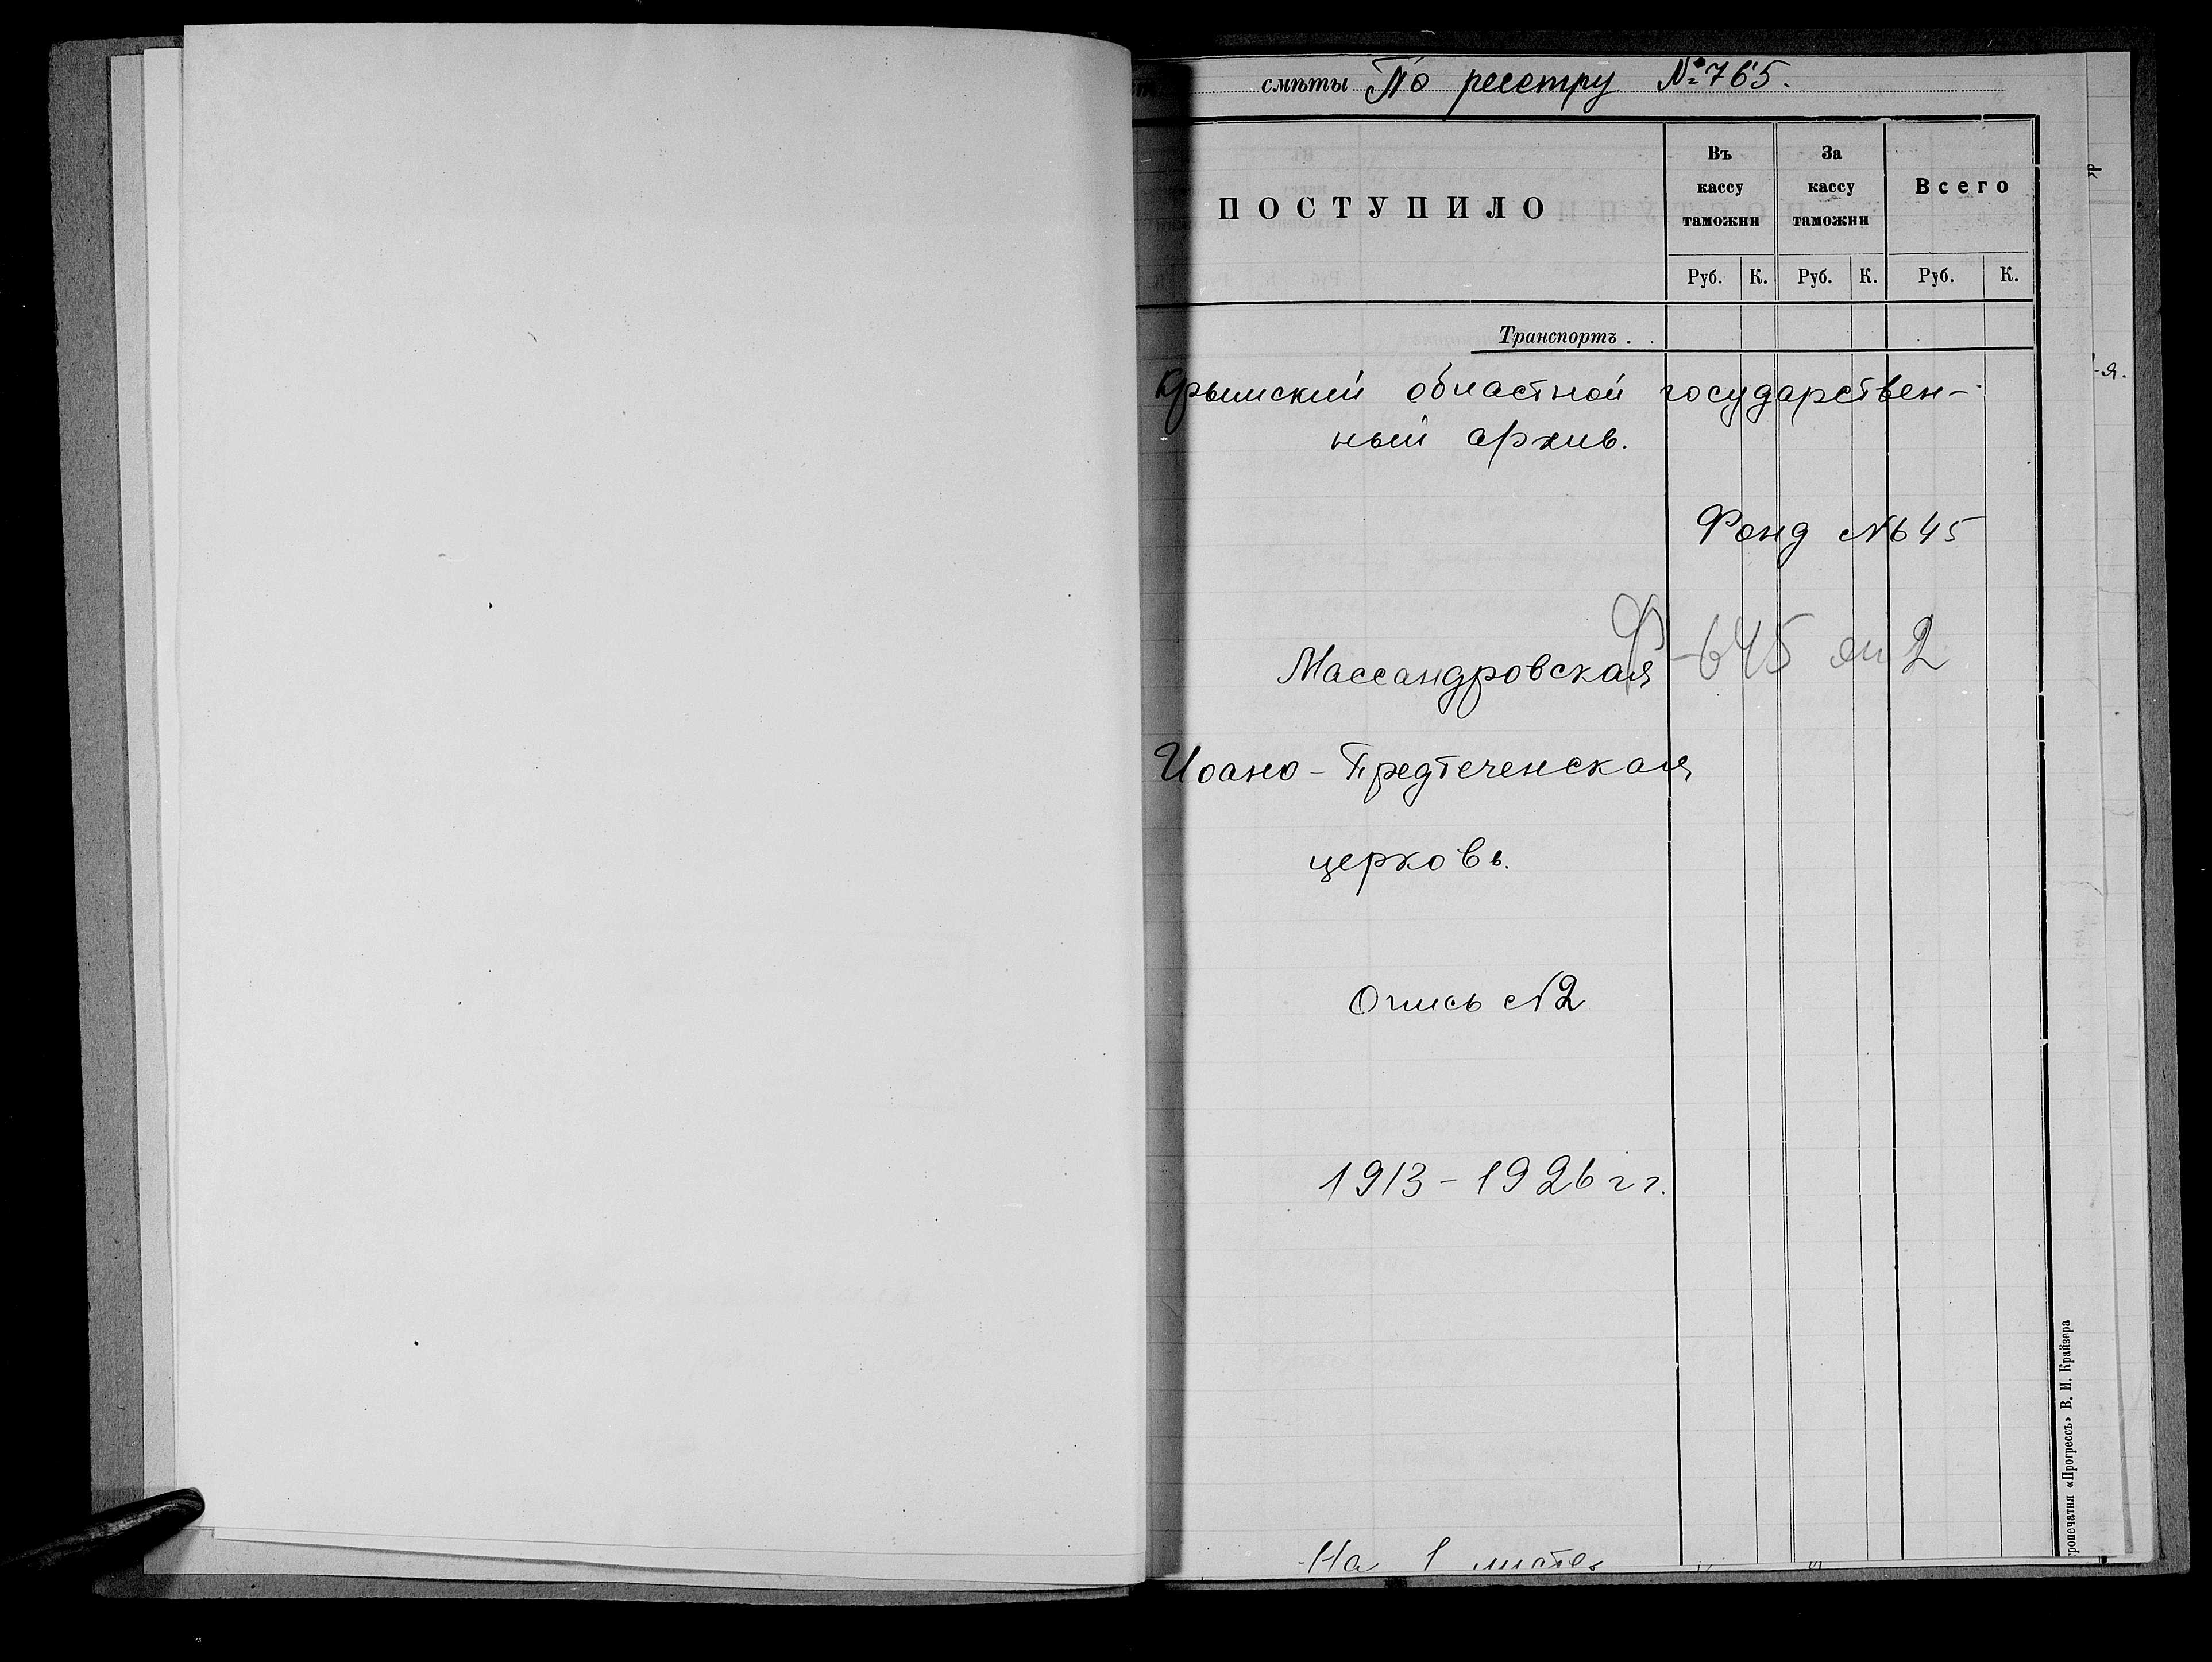 смѣты По реестру №765.
ПОСТУПИЛО
Въ кассу таможни
За кассу таможни
Всего
Руб. К. Руб. К. Руб. К.
Транспортъ . .
Крымский областной государствен-
ный архив.
Фонд №645
Ф-645 оп 2
Массандровская
Иоано-Предтеченская
церковь.
Опись №2
1913-1926 гг.
На 1 листе
тропечатня «Прогрессъ» В. И. Крайзера
-я.